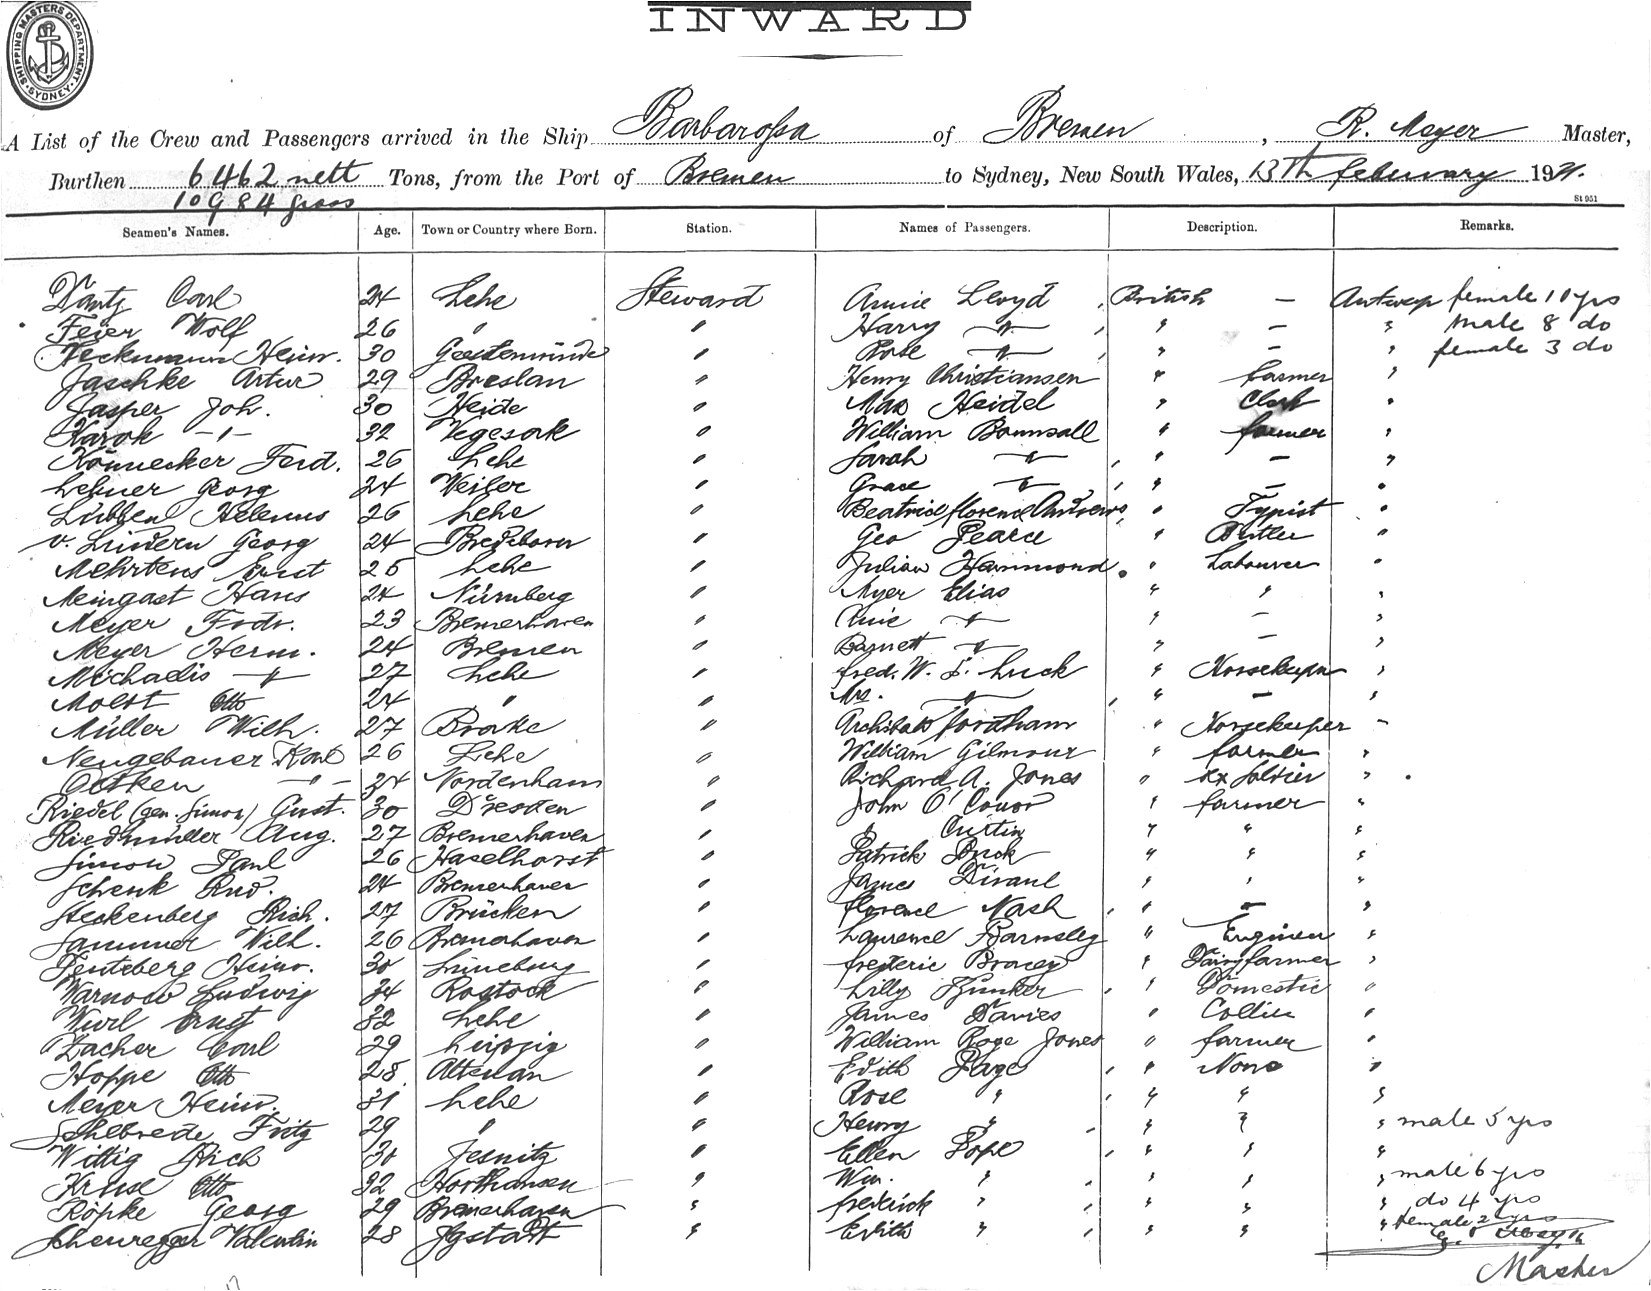 SHIPPING MASTERS DEPARTMENT SYDNEY
INWARD
A List of the Crew and Passengers arrived in the Ship Barbarossa of Bremen, R. Meyer Master,
Burthen 6462 nett Tons, from the Port of Bremen to Sydney, New South Wales, 13th february 191
10984 gross
St 951
Seamen's Names. Age. Town or Country where Born. Station. Names of Passengers. Description. Remarks.
Carl 24 Lehe Steward Annie Lloyd, British - Antwep female 10 yrs
Feier Wolf 26 " " Harry -"- , " - " Male 8 do
Heinr. 30 Geestemünde " Rose -"- , " - " female 3 do
Jaschke Artur 29 Breslau " Henry Christiansen " farmer "
Jasper Joh. 30 Heide " Max Heidel " Clerk "
Karok -"- 32 Vegesak " William Bounsall " farmer "
Könnecker Ferd. 26 Lehe " Sarah -"- , " - "
Lehner Georg 24 Weiler " Grace -"- , " - "
Lübben Helenus 26 Lehe " Beatrice florence Andrews, " Typist "
v. Lindern Georg 24 " Geo Pearce " Butler "
Mehrtens Ernst 25 Lehe " Julian Hammond " Labourer "
Meingast Hans 24 Nürnberg " Myer Elias " " "
Meyer Fodr. 23 Bremerhaven " -"- " - "
Meyer Herm. 24 Bremen " Barnett -"- " - "
Michaelis -"- 27 Lehe " fred. W. S. Luck " Horsekeeper "
Molst Otto 24 " " Mrs. -"- , " - "
Müller Wilh. 27 Brake " Archibald fordham " Horsekeeper -
Neugebauer Karl 26 Lehe " William Gilmour " farmer "
Oetken -"- 34 Nordenham " Richard A. Jones " Ex Soldier "
Riedel (gen. Simon) Gust. 30 Dresden " John O'Conor " farmer "
Riedmüller Aug. 27 Bremerhaven " " Curtin " " "
Simon Paul 26 Haselhorst " Patrick Buck " " "
Schenk Rud. 24 Bremerhaven " James " " "
Steckenberg Rich. 27 Brücken " florence Nash , " - "
Sammer Wilh. 26 Bremerhaven " Laurence Barnsley " Engineer "
Heinr. 30 Lüneburg " frederic Bracey " Dairyfarmer "
Warnow Ludwig 34 Rostock " Lilly , " Domestic "
Ernst 32 Lehe " James Davies " Collier "
Zacher Carl 29 Leipzig " William Roge Jones " farmer "
Hoppe Otto 28 " Edith Page , " None "
Meyer Heinr. 31 Lehe " Rose " , " " "
Fritz 29 " " Henry " , " " " male 5 yrs
Wittig Rich 30 Jesnitz " Ellen Pope , " " "
Kruse Otto 32 " Wm. " , " " " male 6 yrs
Röpke Georg 29 Bremerhaven " frederick " , " " " do 4 yrs
Valentin 28 " Edith " , " " " female 2 yrs
Master